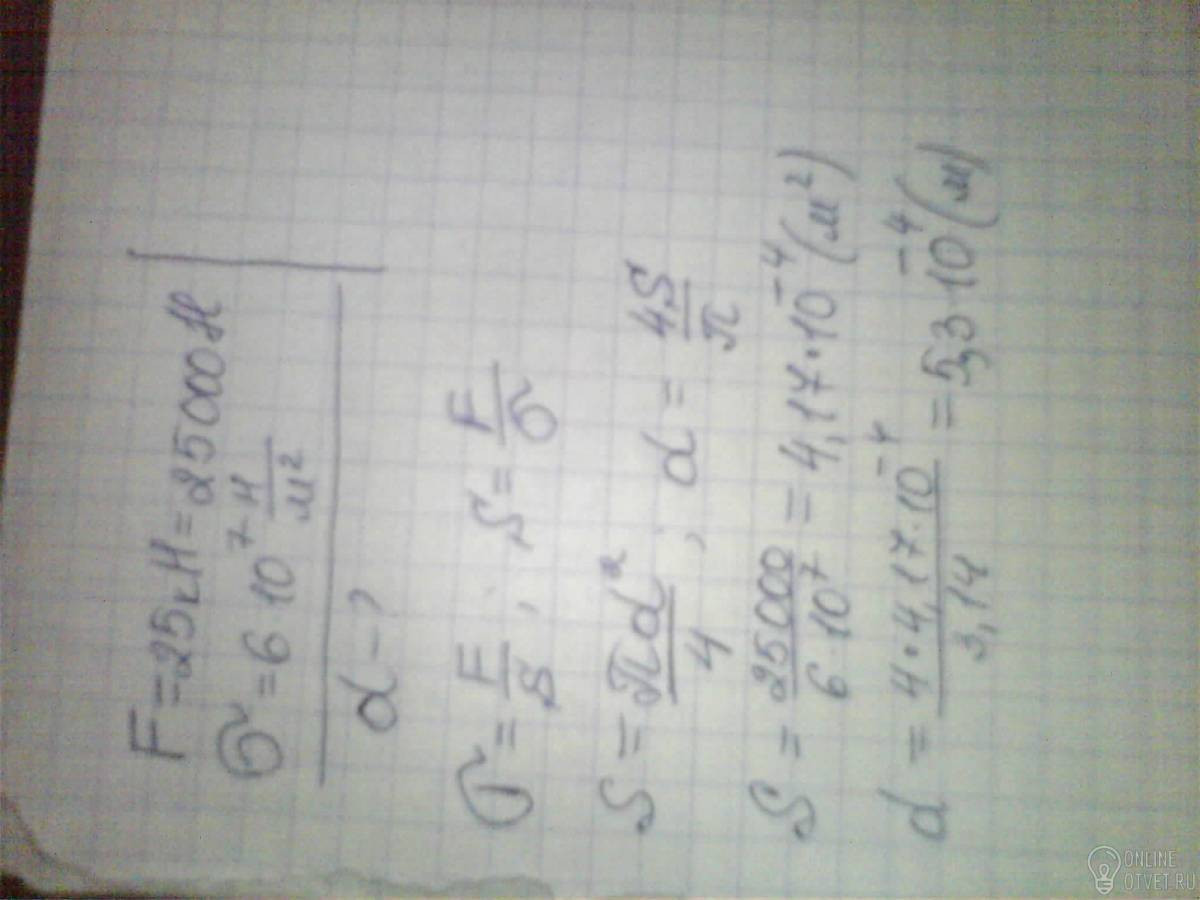 F=25кН=25000Н
σ=6·10⁷ Н/м²
d-?
σ=F/S; S=F/σ
S=πd²/4; d=4S/π
S=25000/6·10⁷=4,17·10⁻⁴(м²)
d=4·4,17·10⁻⁴/3,14=5,3·10⁻⁴(м)
ONLINE
OTVET.RU